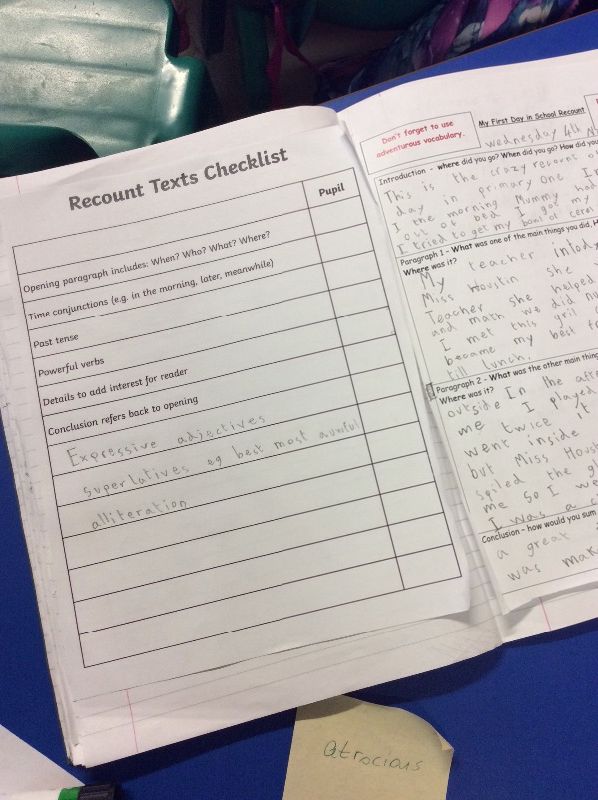 Recount Texts Checklist
Pupil
Opening paragraph includes: When? Who? What? Where?
Time conjunctions (e.g. in the morning, later, meanwhile)
Past tense
Powerful verbs
Details to add interest for reader
Conclusion refers back to opening
Expressive adjectives
superlatives eg best most aumful
alliteration
Don't forget to use
adventurous vocabulary.
My First Day in School Recount
wednesday 4th
Introduction - where did you go? When did you go? How did you
This is the crazy recouns of
day in primary one In
I the morning Mummy had
out of bed I got my
I tried to get my bowl of cere
Paragraph 1 - What was one of the main things you did,
Where was it?
My teacher
Miss Houstin she
Teacher she helped
and math we did no
I met this gril c
became my best f
till lunch.
Paragraph 2 - What was the other main thing
Where was it?
In the aft
outside I played
me twice I
went inside
but Miss Houst
spiled the gl
me So I we
I was a c
Conclusion - how would you sum
a great
was mak
atrocious